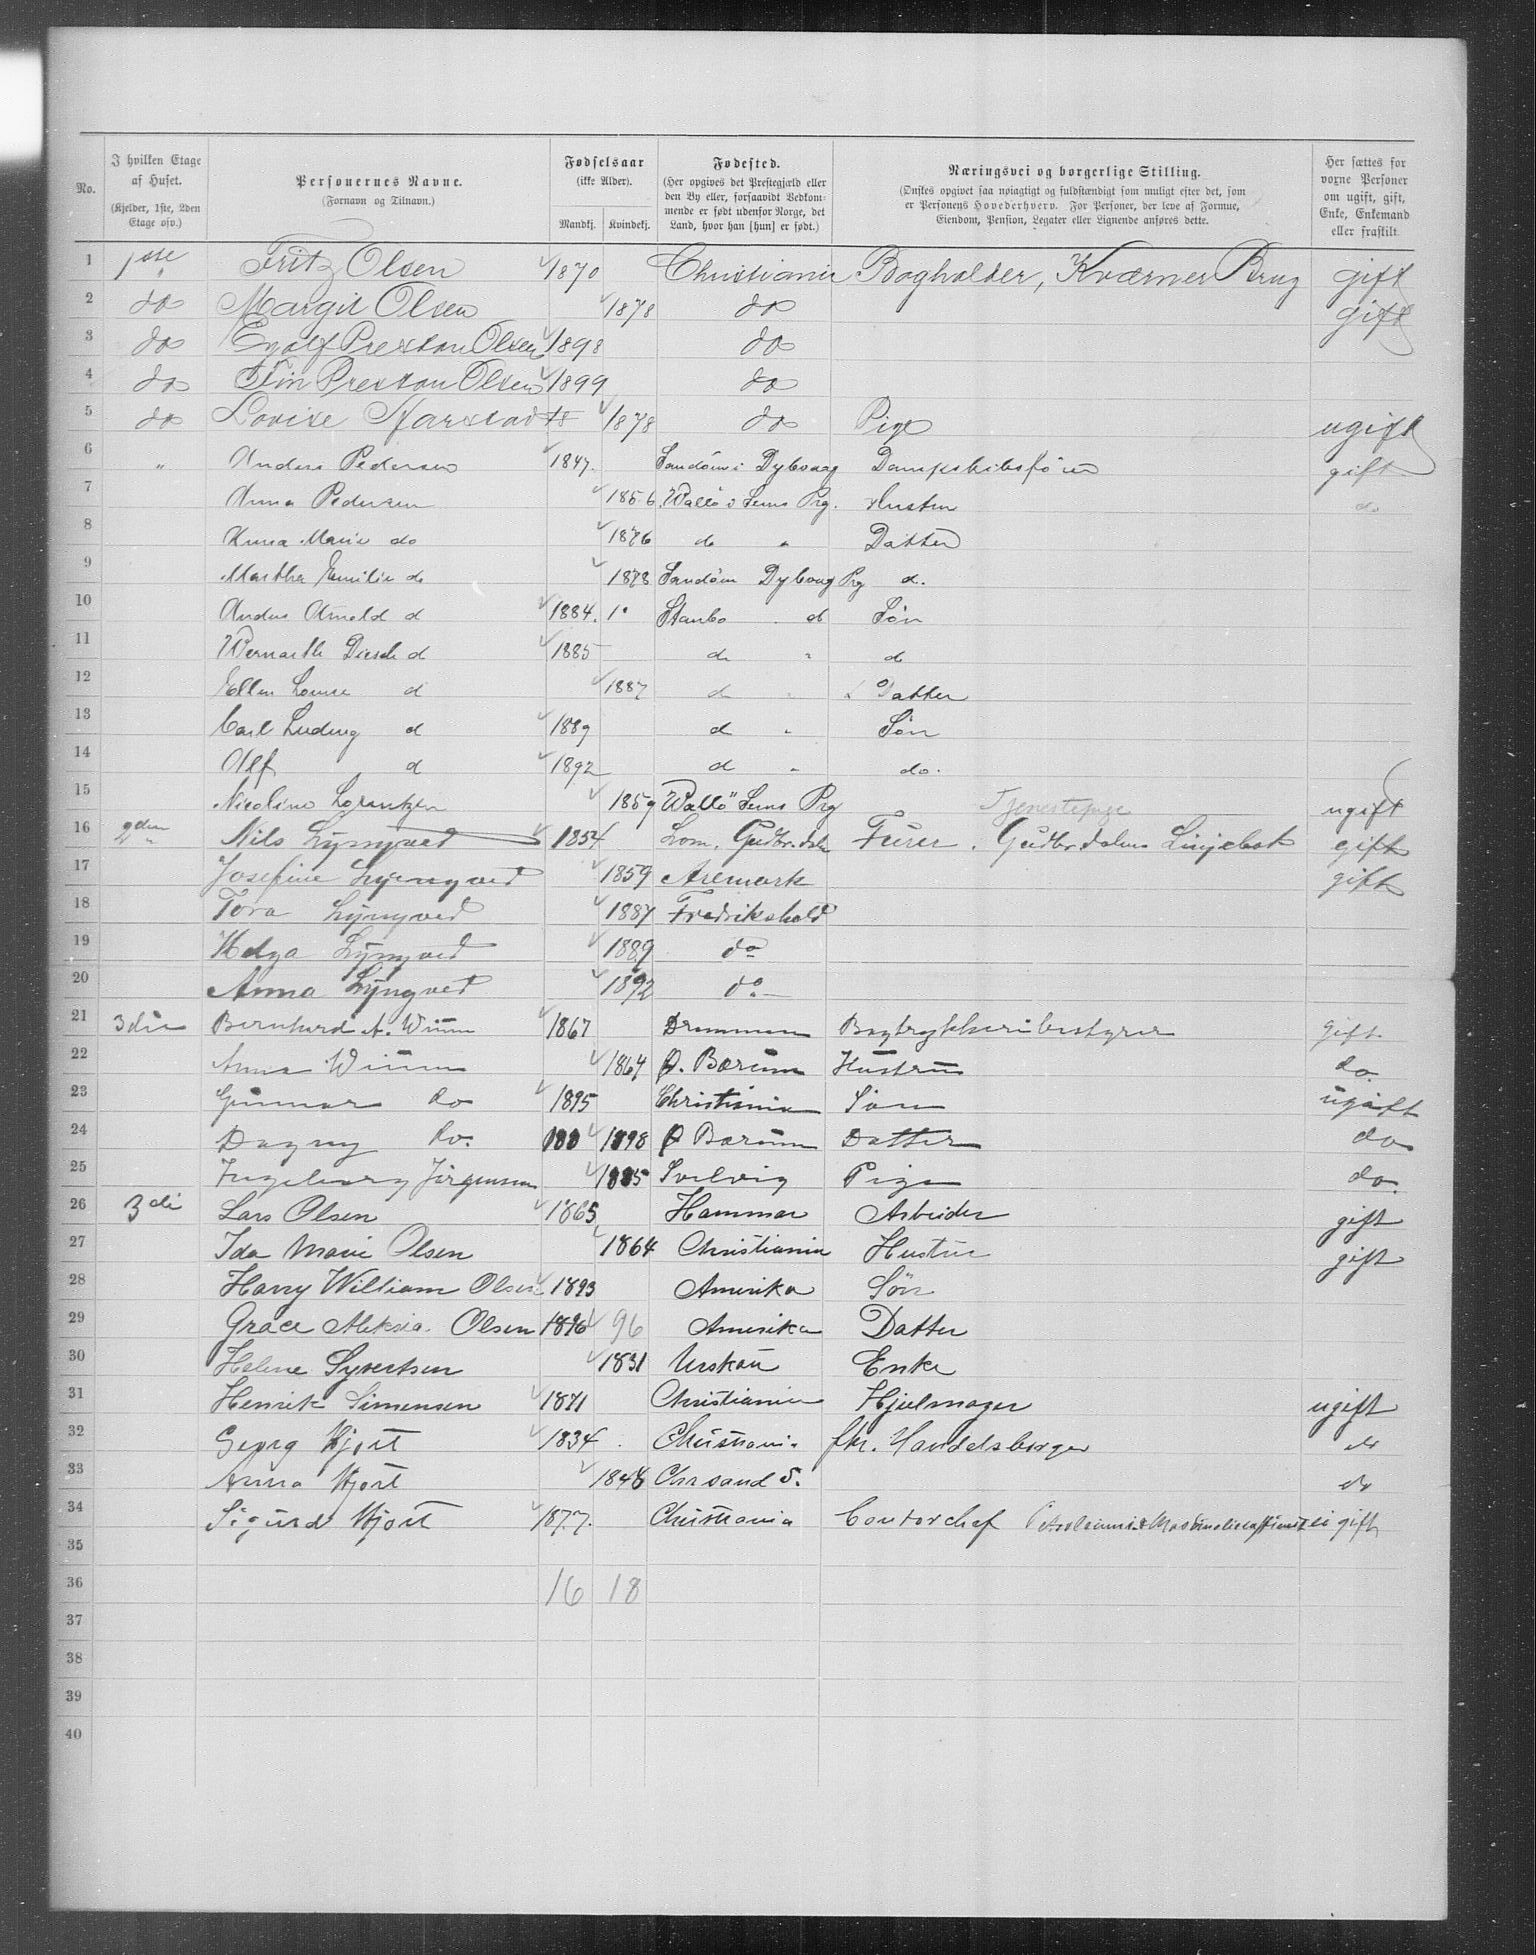 No.
I hvilken Etage af Huset. (Kjelder, 1ste, 2den Etage osv.)
Personernes Navne. (Fornavn og Tilnavn.)
Fødselsaar (ikke Alder). Mandkj. Kvindekj.
Fødested. (Her opgives det Prestegjæld eller den By eller, forsaavidt Vedkommende er født udenfor Norge, det Land, hvor han [hun] er født.)
Næringsvei og borgerlige Stilling. (Ønskes opgivet saa nøiagtigt og fuldstændigt som muligt efter det, som er Personens Hovederhverv. For Personer, der leve af Formue, Eiendom, Pension, Legater eller Lignende anføres dette.)
Her sættes for voxne Personer om ugift, gift, Enke, Enkemand eller fraskilt
1 1ste Fritz Olsen 1870 Christiania Bogholder, Kværner Brug gift
2 do Margit Olsen 1878 do gift
3 do Eyolf Preston Olsen 1898 do
4 do Fin Preston Olsen 1899 do
5 do Lovise 1878 do Pige ugift
6 " Anders Pedersen 1847. Sandøen i Dybvaag Dampskibsfører gift
7 Anna Pedersen 1856 Vallø i Sems Prg. Hustru do
8 Anna Marie do 1876 do " Datter
9 Marthe Emilie do 1878 Sandøen Dybvaag Prg d.
10 Anders Arnold d 1884. 1" Stanbo d Søn
11 d 1885 d " d
12 Ellen Louise d 1887 d " Datter
13 Carl Ludvig d 1889 d " Søn
14 Alf d 1892 d " do.
15 Nicoline Lorentzen 1859 Vallø" Sems Prg Tjenestepige ugift
16 2den " Nils Lyngved 1854 Lom, Gudbr.dalen Furer. Gudbr.dalens ugift
17 Josefine Lyngved 1859 Aremark gift
18 Tora Lyngved 1887 Fredrikshald
19 Helga Lyngved 1889 do
20 Anna Lyngved 1892 do
21 3die Bernhard A. Wium 1867 Drammen Bogtrykkeribestyrer gift
22 Anna Wium 1864 Ø. Bærum Hustru do.
23 Gunnar do 1895 Christiania Søn ugift
24 Dagny do. 1898 Ø Bærum Datter do
25 Ingeborg Jørgensen 1885 Svelvig Pige do.
26 3die Lars Olsen 1865 Hammar Arbeider gift
27 Ida Marie Olsen 1864 Christiania Hustru gift
28 Harry William Olsen 1893 Amerika Søn
29 Grace Aleksia. Olsen 1896 96 Amerika Datter
30 Helene Syvertsen 1831 Urskou Enke
31 Henrik Simensen 1871 Christiania Hjulmager ugift
32 Georg Hjort 1834 Christiania fhv. Handelsborger do
33 Anna Hjort 1848 Chrsand S. do
34 Sigurd Hjort 1877. Christiania Contorchef ugift
35
36 16 18
37
38
39
40